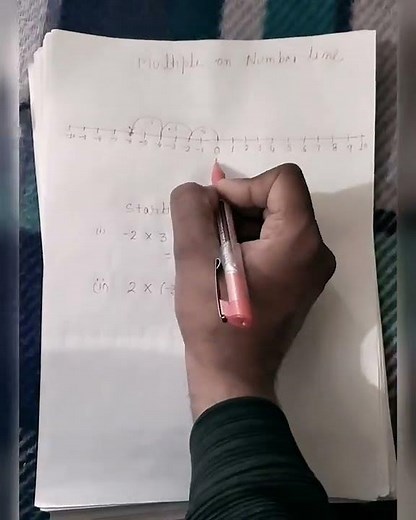 Multiple on Number line
-10 -9 -8 -7 -6 -5 -4 -3 -2 -1 0 1 2 3 4 5 6 7 8 9 10
(i) -2 × 3
=
(ii) 2 × (-3